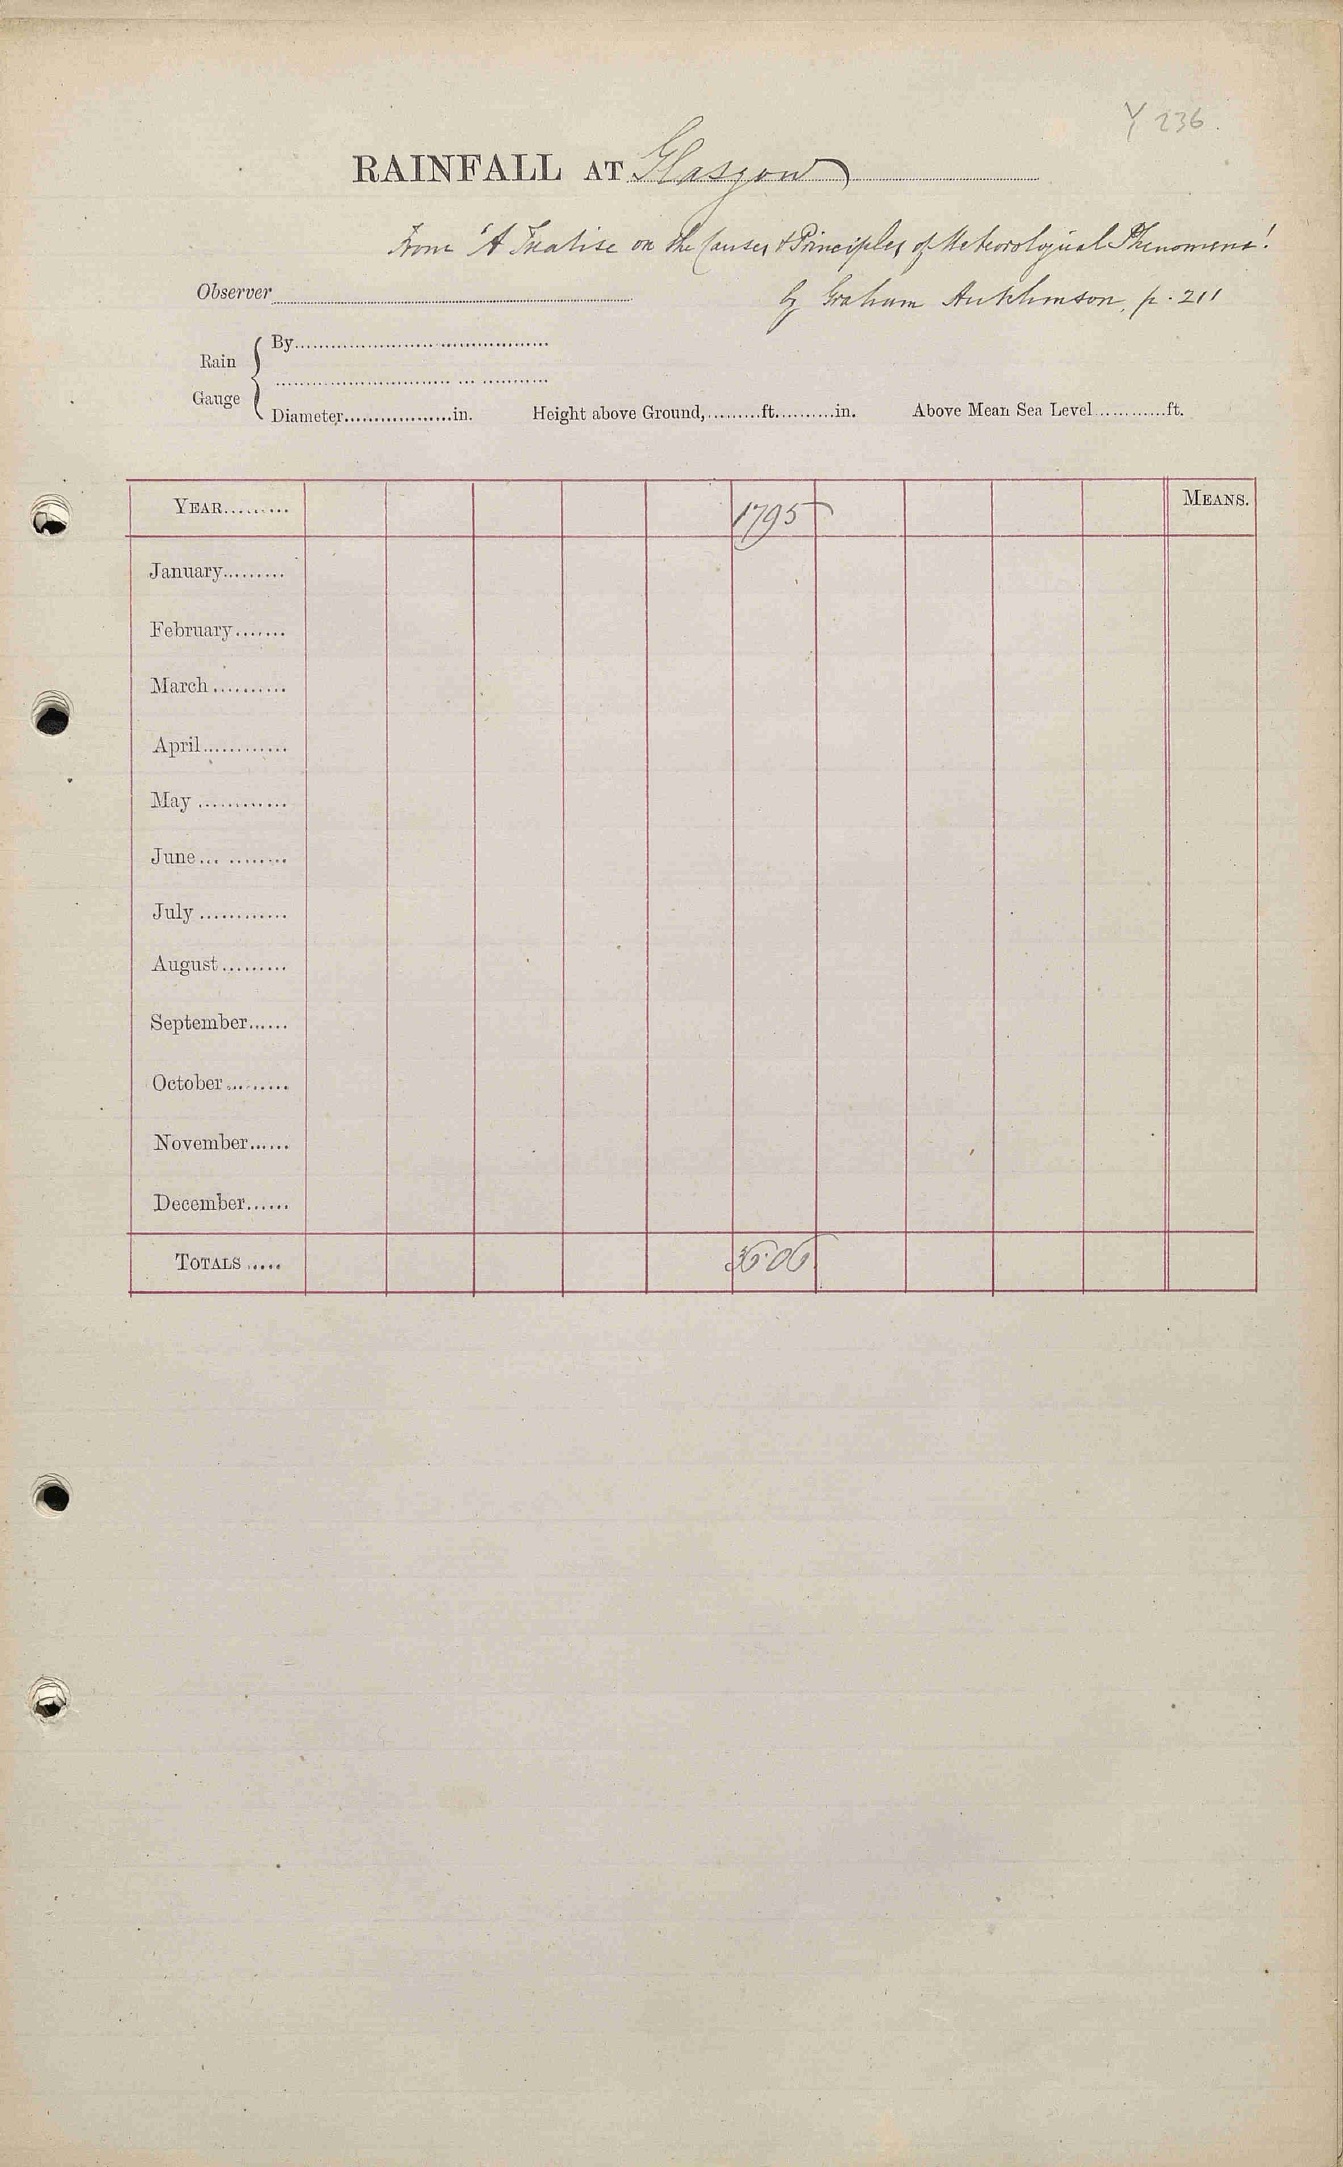 Y 236.
RAINFALL AT Glasgow
From 'A Treatise on the Causes & Principles of Meteorological Phenomena'
Observer by Graham Hutchinson, p. 211
By
Rain
Gauge
Diameter in. Height above Ground, ft. in. Above Mean Sea Level ft.
YEAR 1795 MEANS.
January
February
March
April
May
June
July
August
September
October
November
December
TOTALS 36.06